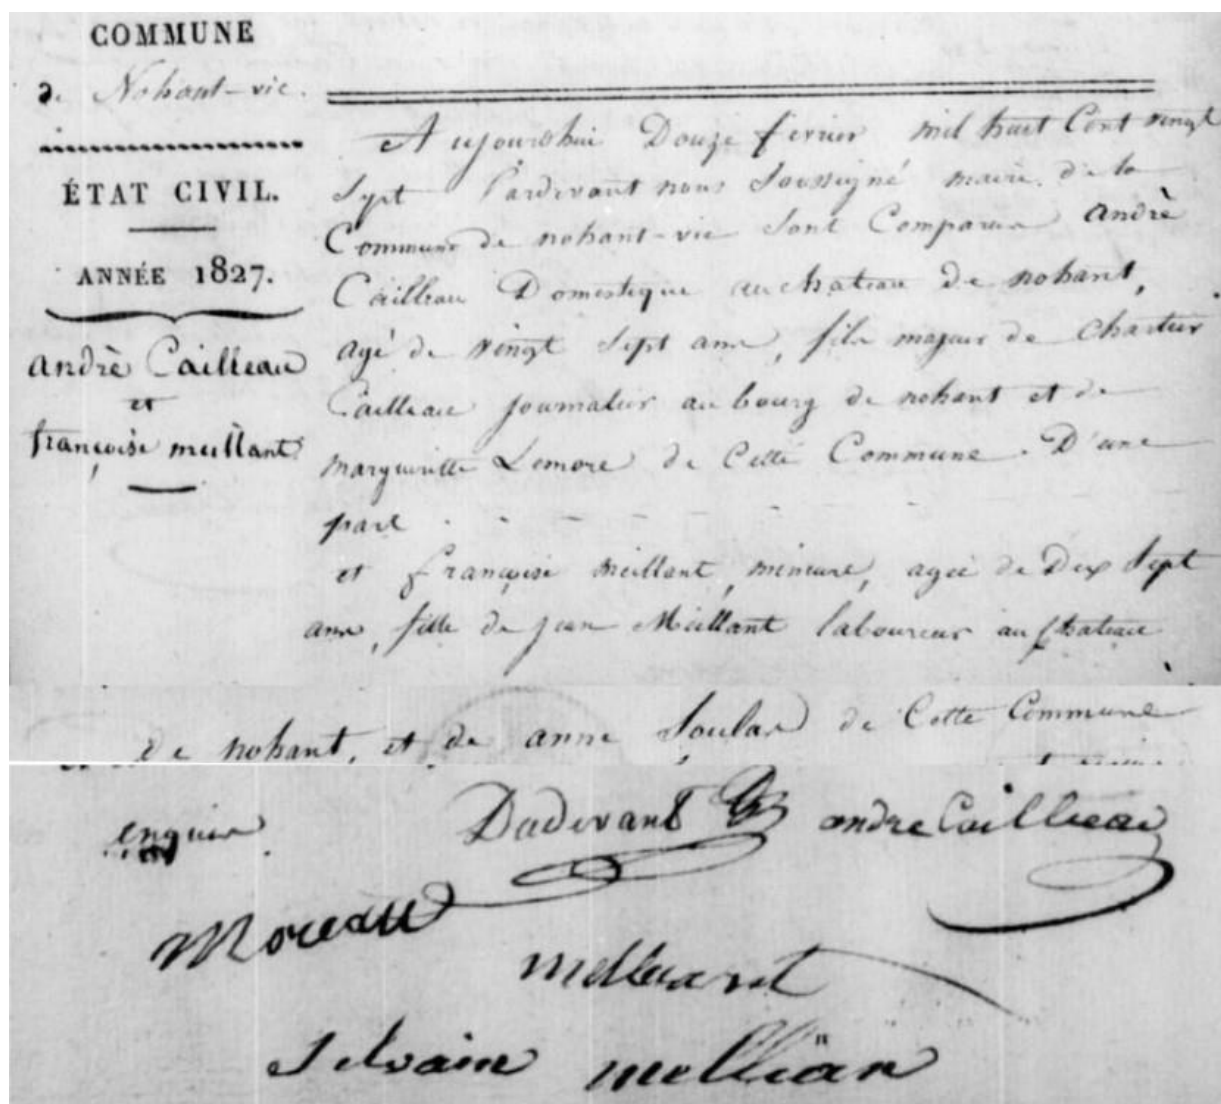 COMMUNE
de Nohant-vic.
ÉTAT CIVIL.
ANNÉE 1827.
andrè Cailleau
et
françoise meillant
Aujourdhui Douze fevrier mil huit Cent vingt
Sept Pardevant nous Soussigné maire de la
Commune de nohant-vic Sont Comparus andrè
Cailleau Domestique au chateau de nohant,
agé de vingt Sept ans, fils majeur de
Cailleau journalier au bourg de nohant et de
margueritte Lemore de Cette Commune. D'une
part
et françoise meillant, mineure, agée de Dix Sept
ans, fille de jean Meillant laboureur au chateau
de nohant, et de anne Soulas de Cette Commune
Dudevant andre Cailleau
Moreau
Silvain mellian